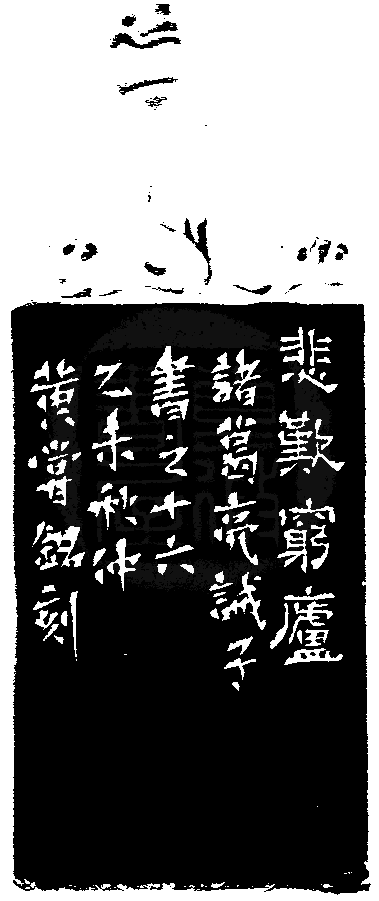 悲歎窮廬
諸葛亮誡子
書之十六
乙未秋仲
黄嘗銘刻